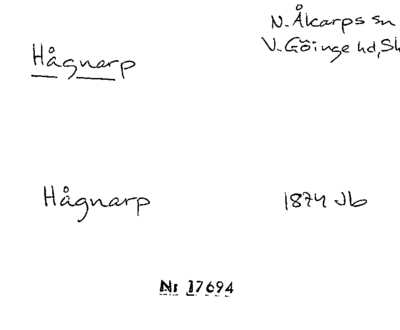 N. Åkarps sn
Hågnarp
V. Göinge hd, Sk
Hågnarp
1874 Jb
Nr 17694